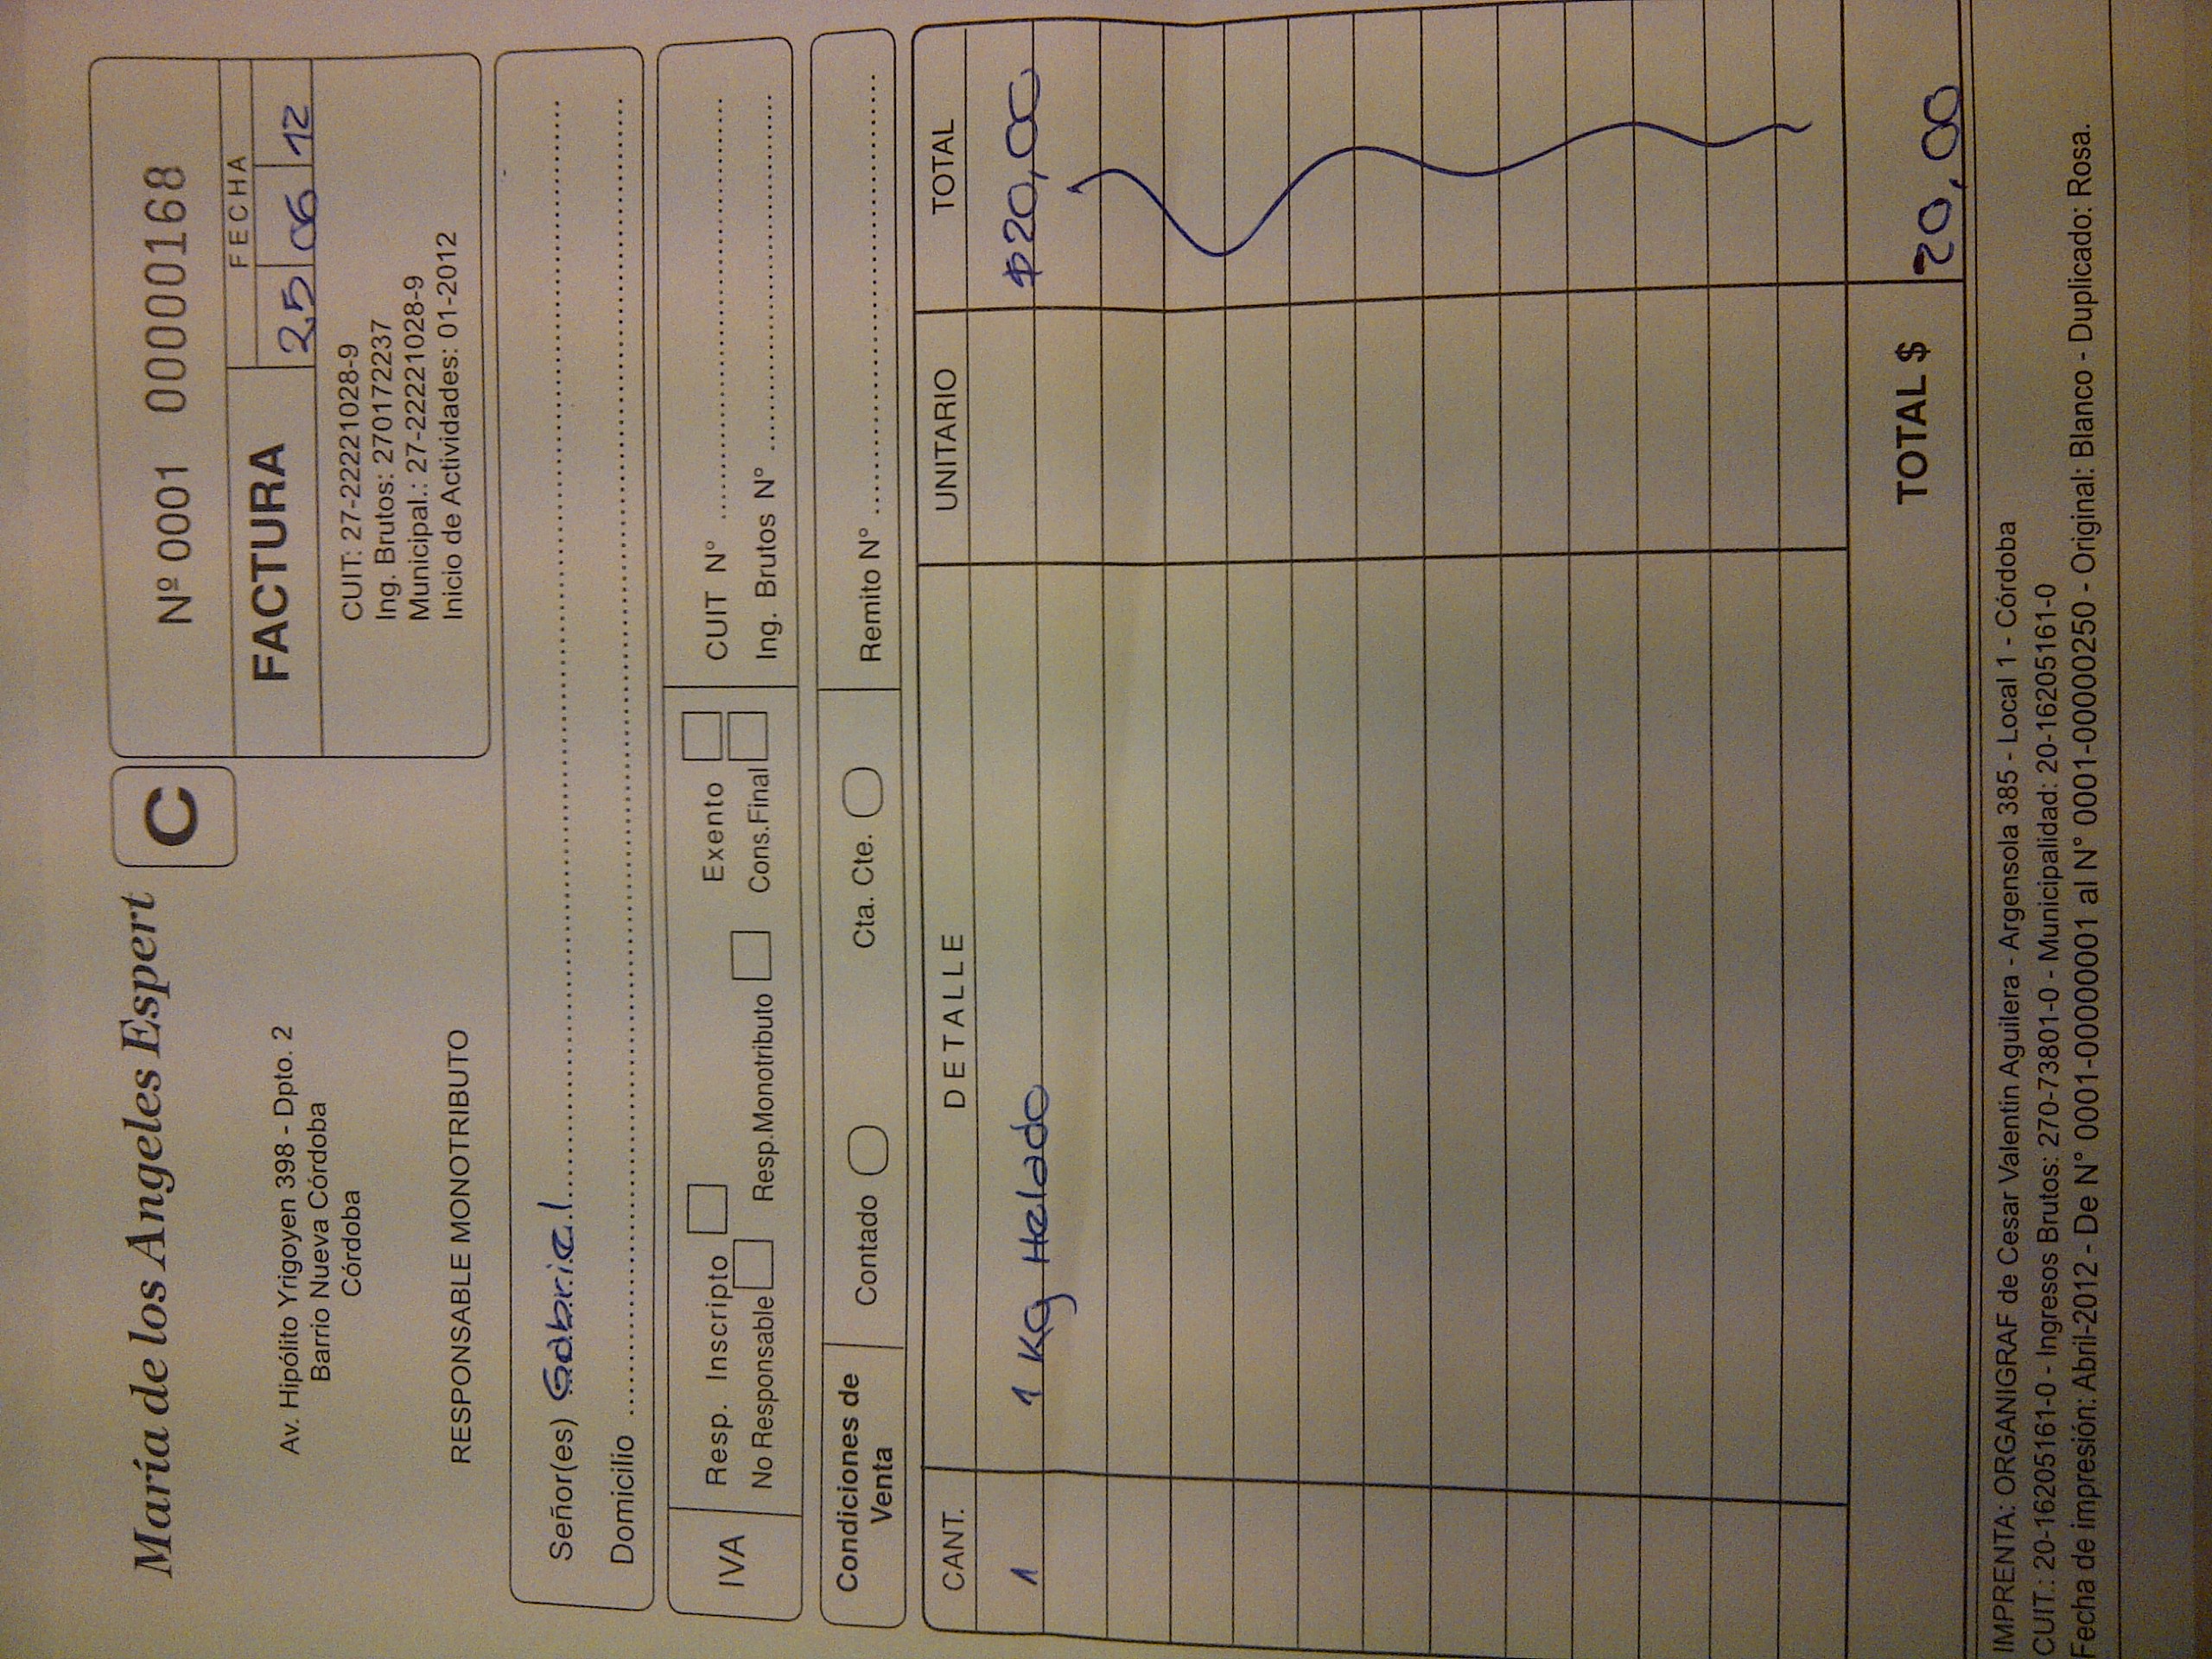 María de los Angeles Espert
C
Nº 0001 00000168
FACTURA
FECHA
25 06 12
Av. Hipólito Yrigoyen 398 - Dpto. 2
Barrio Nueva Córdoba
Córdoba
RESPONSABLE MONOTRIBUTO
CUIT: 27-22221028-9
Ing. Brutos: 270172237
Municipal.: 27-22221028-9
Inicio de Actividades: 01-2012
Señor(es) Gabriel
Domicilio
IVA
Resp. Inscripto Exento
No Responsable Resp.Monotributo Cons.Final
CUIT N°
Ing. Brutos N°
Condiciones de
Venta
Contado Cta. Cte.
Remito N°
CANT. DETALLE UNITARIO TOTAL
1 1 Kg Helado $20,00
TOTAL $ 20,00
IMPRENTA: ORGANIGRAF de Cesar Valentin Aguilera - Argensola 385 - Local 1 - Córdoba
CUIT.: 20-16205161-0 - Ingresos Brutos: 270-73801-0 - Municipalidad: 20-16205161-0
Fecha de impresión: Abril-2012 - De N° 0001-00000001 al N° 0001-00000250 - Original: Blanco - Duplicado: Rosa.